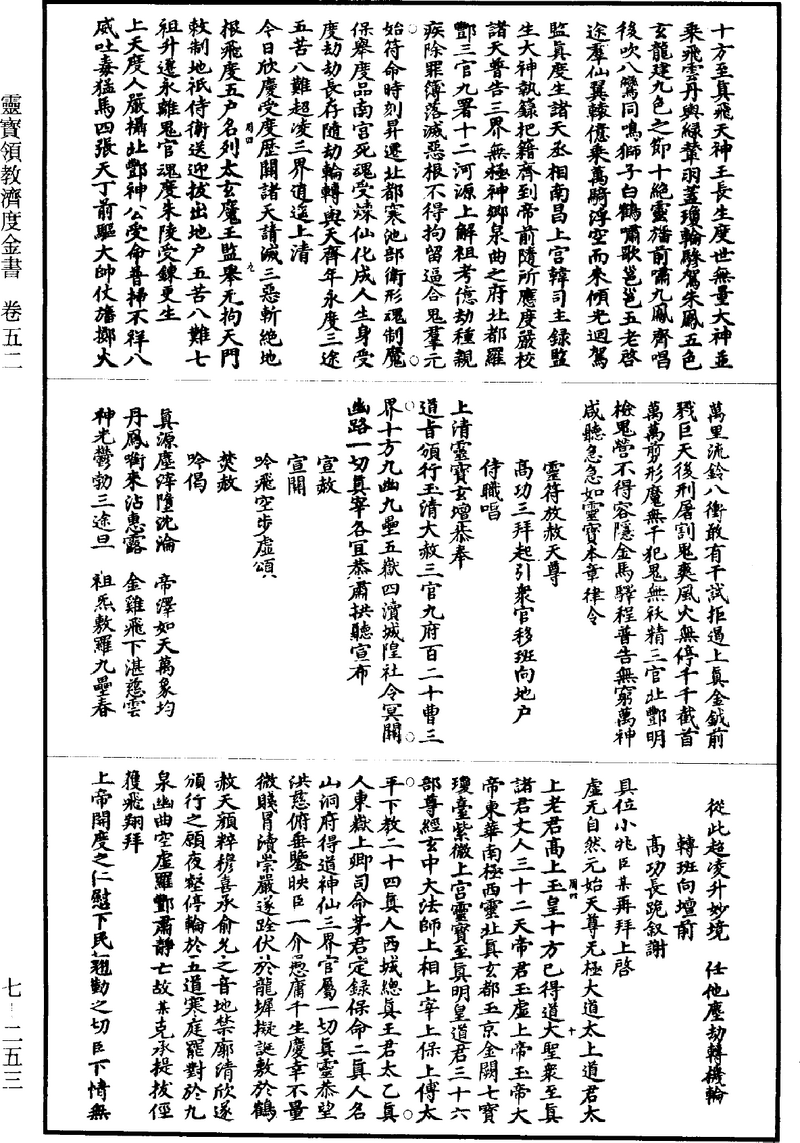 十方至真飛天神王長生度世無量大神並
乘飛雲丹輿綠輦羽蓋瓊輪驂駕朱鳳五色
玄龍建九色之節十絕靈旛前嘯九鳳齊唱
後吹八鸞同鳴獅子白鶴嘯歌邕邕五老啓
途羣仙翼轅億乘萬騎浮空而來傾光迴駕
監真度生諸天丞相南昌上宮韓司主錄監
生大神執籙把籍齊到帝前隨所應度嚴校
諸天普告三界無極神鄉泉曲之府北都羅
酆三官九署十二河源上解祖考億劫種親
疾除罪簿落滅惡根不得拘留逼合鬼羣元
始符命時刻昇遷北都寒池部衛形魂制魔
保舉度品南宮死魂受煉仙化成人生身受
度劫劫長存隨劫輪轉與天齊年永度三途
五苦八難超凌三界逍遥上清
今日欣慶受度歷關諸天請滅三惡斬絕地
根飛度五户名列太玄魔王監舉无拘天門
敕制地祇侍衛送迎拔出地户五苦八難七
祖升遷永離鬼官魂度朱陵受鍊更生
上天度人嚴攝北酆神公受命普掃不祥八
威吐毒猛馬四張天丁前驅大帥仗旛擲火
萬里流鈴八衝敢有干試拒遏上真金鉞前
戮巨天後刑屠割鬼爽風火無停千千截首
萬萬剪形魔無干犯鬼無祅精三官北酆明
檢鬼營不得容隱金馬驛程普告無窮萬神
咸聽急急如靈寶本章律令
靈符放赦天尊
高功三拜起引衆官移班向地户
侍職唱
上清靈寶玄壇恭奉
道旨頒行玉清大赦三官九府百二十曹三
界十方九幽九壘五嶽四瀆城隍社令冥關
幽路一切真宰各宜恭肅拱聽宣布
宣赦
宣關
吟飛空步虛頌
焚赦
吟偈
真源塵滓墮沈淪　帝澤如天萬象均
丹鳳啣來沾惠露　金雞飛下湛慈雲
神光鬱勃三途旦　祖炁敷羅九壘春
從此超凌升妙境　任他塵劫轉機輪
轉班向壇前
高功長跪叙謝
具位小兆臣某再拜上啓
虛无自然元始天尊无極大道太上道君太
上老君高上玉皇十方已得道大聖衆至真
諸君丈人三十二天帝君玉虛上帝玉帝大
帝東華南極西靈北真玄都玉京金闕七寶
瓊臺紫微上宮靈寶至真明皇道君三十六
部尊經玄中大法師上相上宰上保上傅太
平下教二十四真人西城總真王君太乙真
人東嶽上卿司命茅君定錄保命二真人名
山洞府得道神仙三界官屬一切真靈恭望
洪慈俯垂鑒映臣一介愚庸千生慶幸不量
微賤冒瀆崇嚴遂跧伏於龍墀擬誕敷於鶴
赦天顏粹穆喜承俞允之音地禁廓清欣遂
頒行之願夜壑停輪於五道寒庭罷對於九
泉幽曲空虛羅酆肅靜亡故某克承提拔俓
獲飛翔拜
上帝開度之仁慰下民翹勤之切臣下情無
靈寶領教濟度金書　卷五二
七－二五三